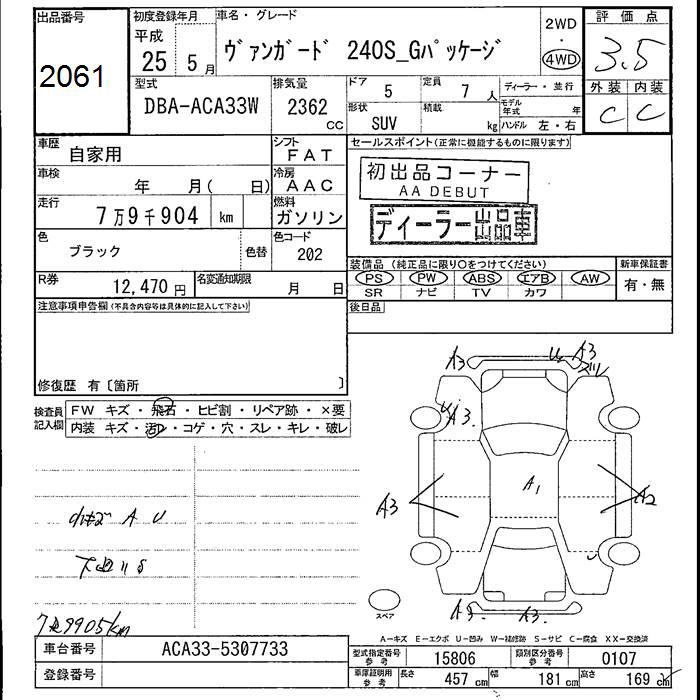 出品番号 初度登録年月 車名・グレード 2WD 評価点
2061 平成 25 5月 ヴァンガード 240S_Gパッケージ ・ 4WD 3.5
型式 排気量 ドア 5 定員 7人 ディーラー・並行 外装 内装
DBA-ACA33W 2362 cc 形状 SUV 積載 kg モデル年式 年 ハンドル 左・右 C C
車歴 自家用 シフト FAT セールスポイント(正常に機能するものに限ります)
車検 年 月( 日) 冷房 AAC 初出品コーナー
AA DEBUT
走行 7万9千904 km 燃料 ガソリン ディーラー出品車
色 ブラック 色替 色コード 202
装備品(純正品に限り○をつけてください) 新車保証書
R券 12,470円 名変通知期限 月 日 PS PW ABS エアB AW 有・無
SR ナビ TV カワ
注意事項申告欄(不具合内容等は具体的に記入して下さい) 後日品
修復歴 有〔箇所 〕
検査員記入欄 FW キズ・飛石・ヒビ割・リペア跡・×要
内装 キズ・汚レ・コゲ・穴・スレ・キレ・破レ
A3 U A3
U A3.
A1
A3 A2
A U
下廻リS
A3 A3.
スペア
7万9905km
A-キズ E-エクボ U-凹み W-補修跡 S-サビ C-腐食 XX-交換済
車台番号 ACA33-5307733 型式指定番号 参考 15806 類別区分番号 参考 0107
登録番号 車庫証明用 参考 長さ 457cm 幅 181cm 高さ 169cm